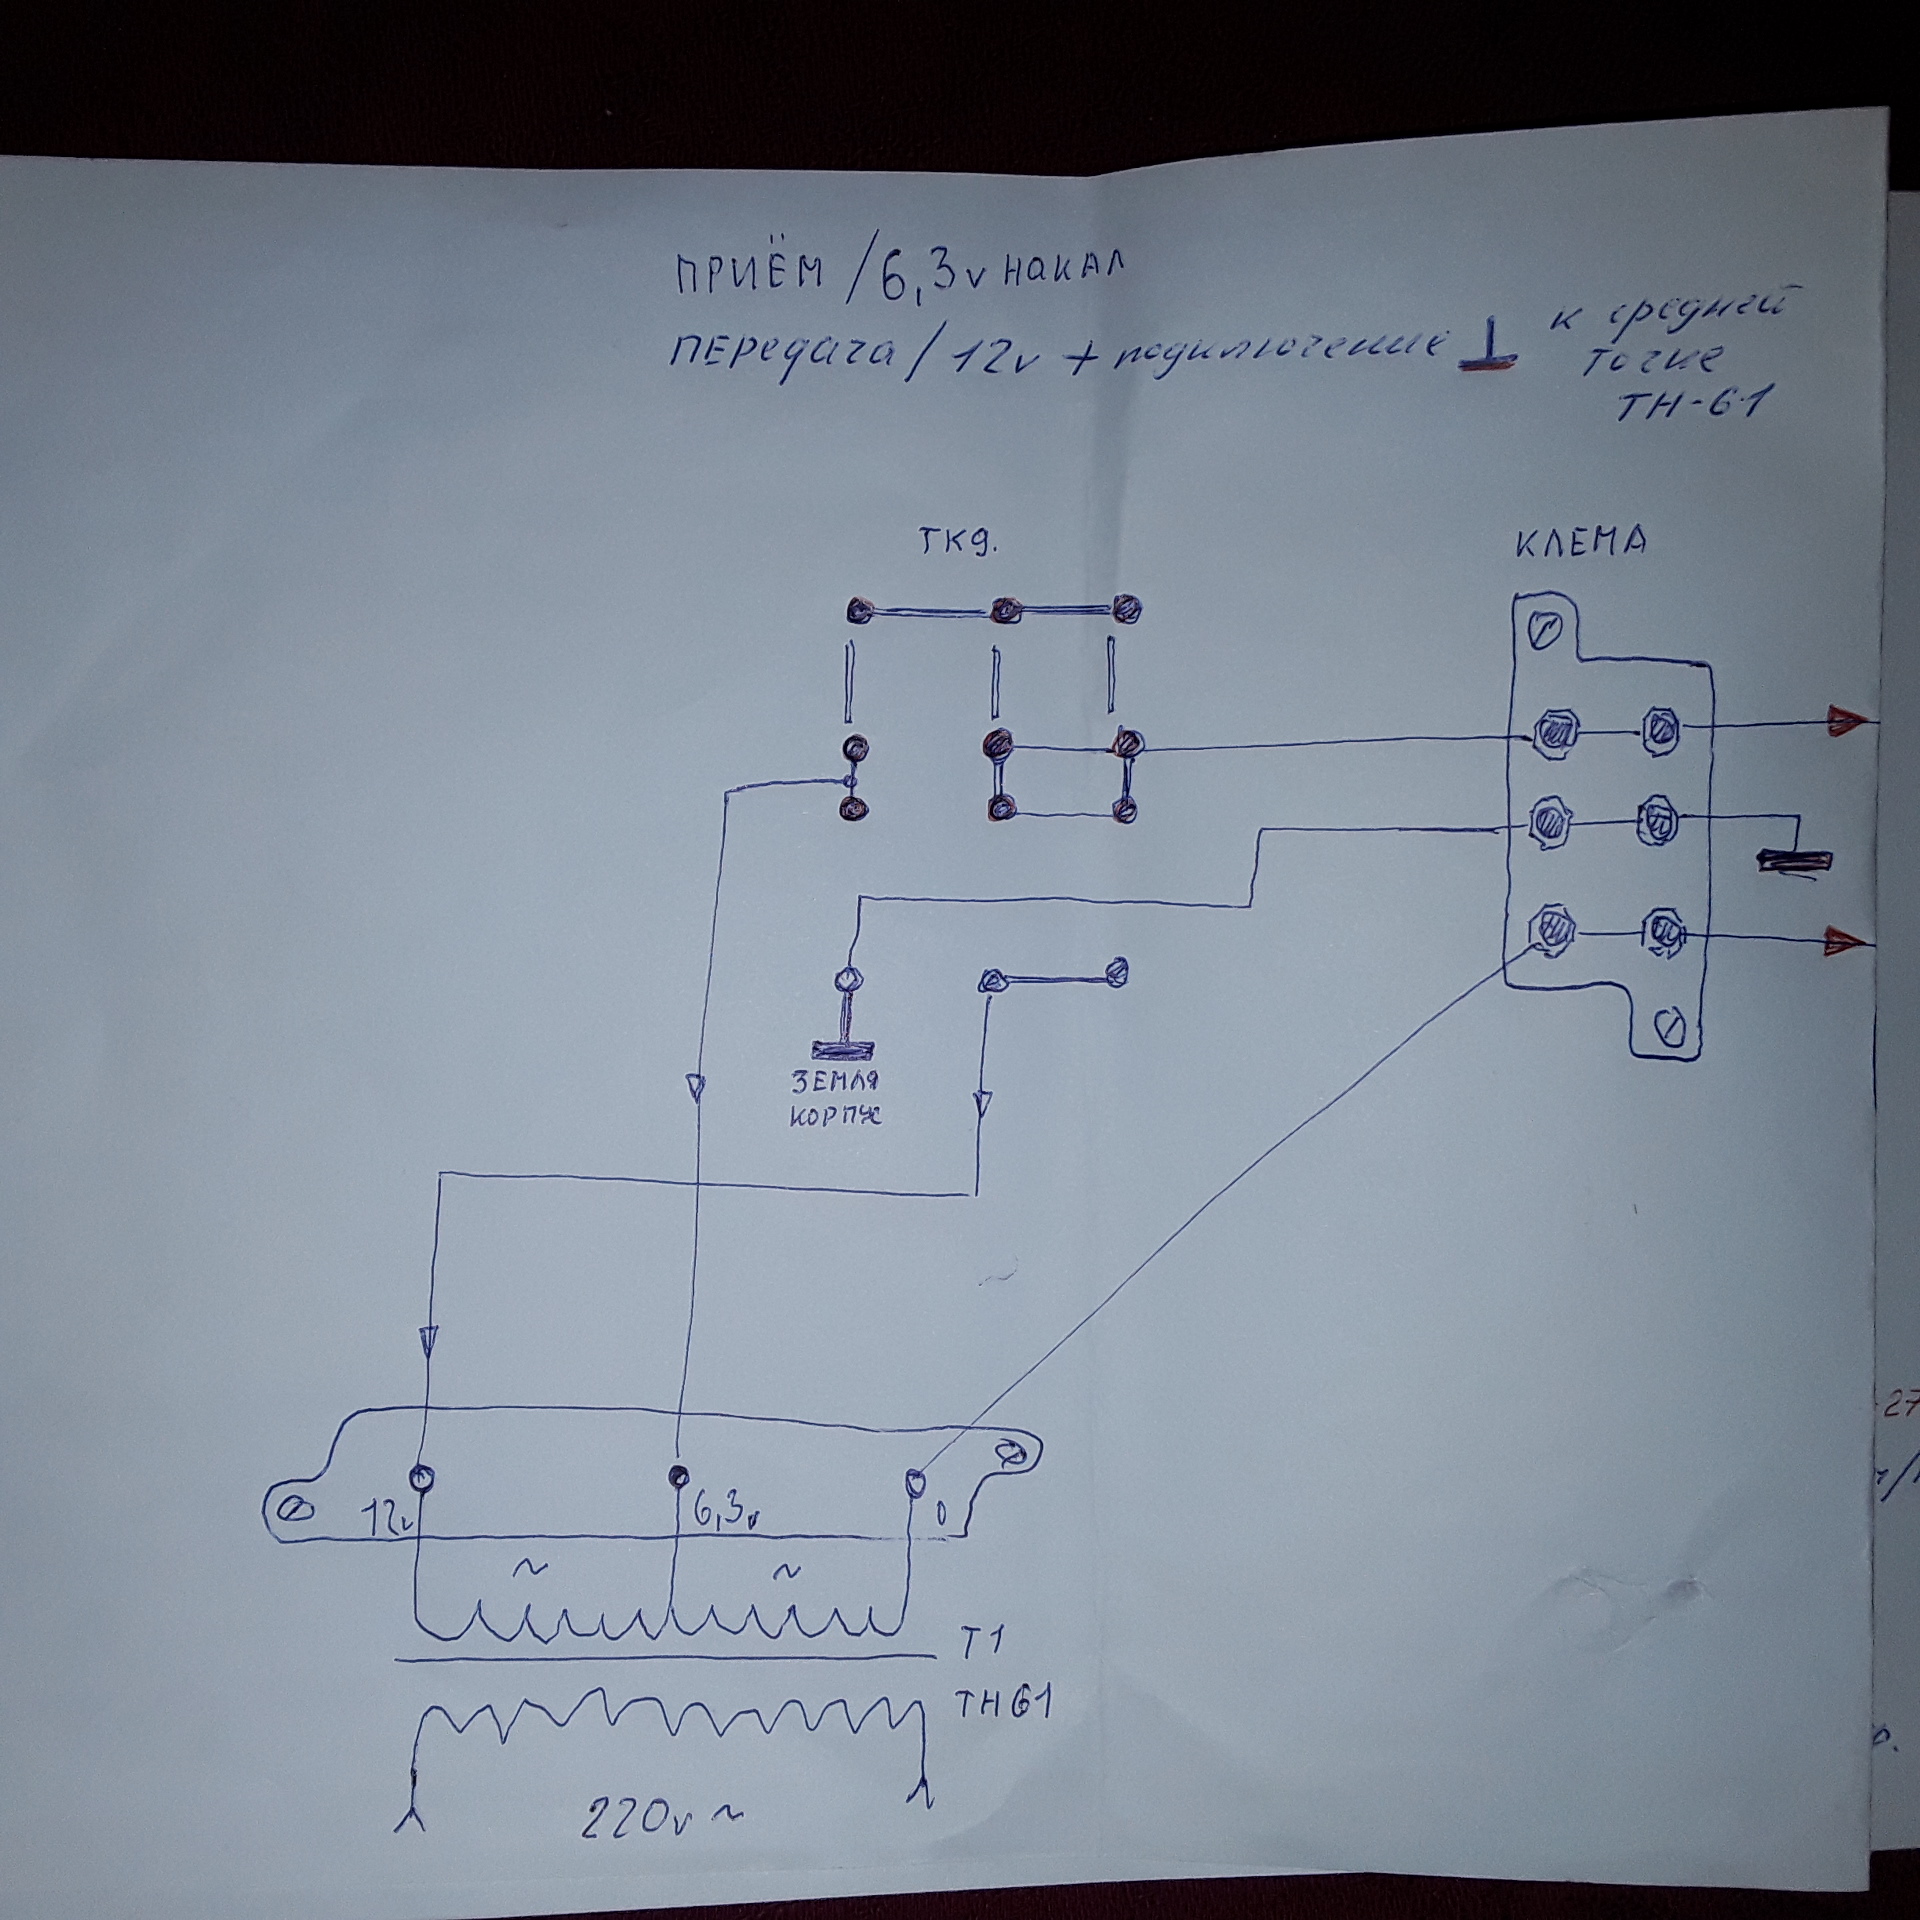 ПРИЁМ / 6,3v накал
ПЕРедача / 12v + подключение к средней
точке
ТН-61
ТК9.
КЛЕМА
ЗЕМЛЯ
КОРПУС
12v
6,3v
0
~ ~
Т1
ТН61
220v ~
27